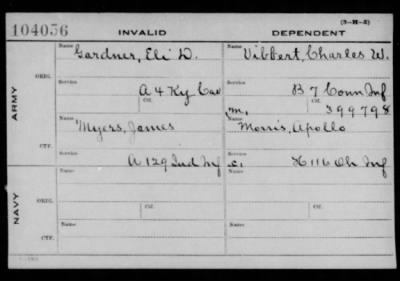 (3-M-2)
104056 INVALID DEPENDENT
Name Gardner, Eli D. Name Vibbert, Charles W.
ARMY
ORIG.
Service A 4 Ky Cav Service B 7 Conn Inf
Ctf. m. 399798
Name Myers, James Name Morris, Apollo
CTF.
Service A 129 Ind Inf Service c. H 116 Oh Inf
NAVY
Name Name
ORIG.
Ctf. Ctf.
Name Name
CTF.